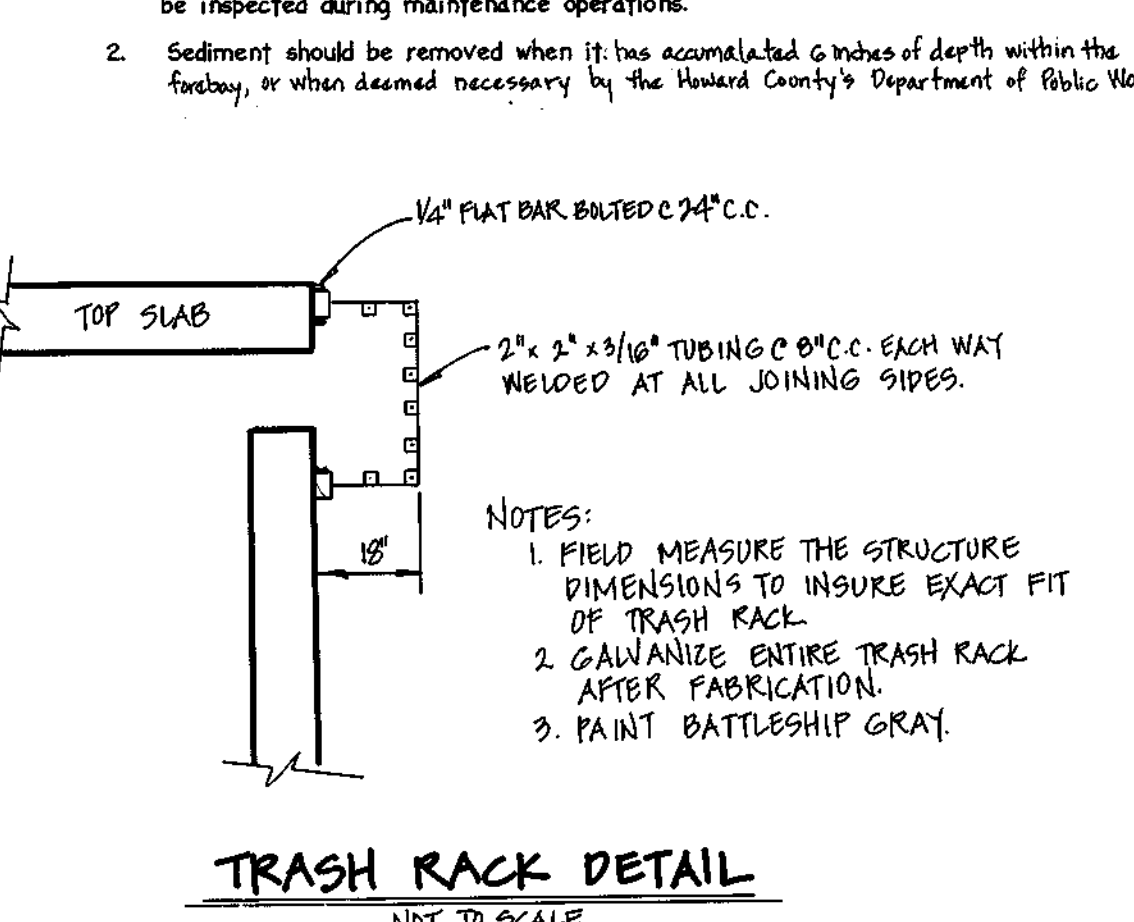 be inspected during maintenance operations.
2. Sediment should be removed when it has accumalated 6 inches of depth within the
forebay, or when deemed necessary by the Howard County's Department of Public Wo
1/4" FLAT BAR BOLTED C 24" C.C.
TOP SLAB
2" x 2" x 3/16" TUBING C 8" C.C. EACH WAY
WELDED AT ALL JOINING SIDES.
18"
NOTES:
1. FIELD MEASURE THE STRUCTURE
DIMENSIONS TO INSURE EXACT FIT
OF TRASH RACK
2 GALVANIZE ENTIRE TRASH RACK
AFTER FABRICATION.
3. PAINT BATTLESHIP GRAY.
TRASH RACK DETAIL
NOT TO SCALE